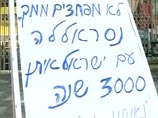 לא מפחדים ממך
נסראללה
עם ישראל איתן
3000 שנה